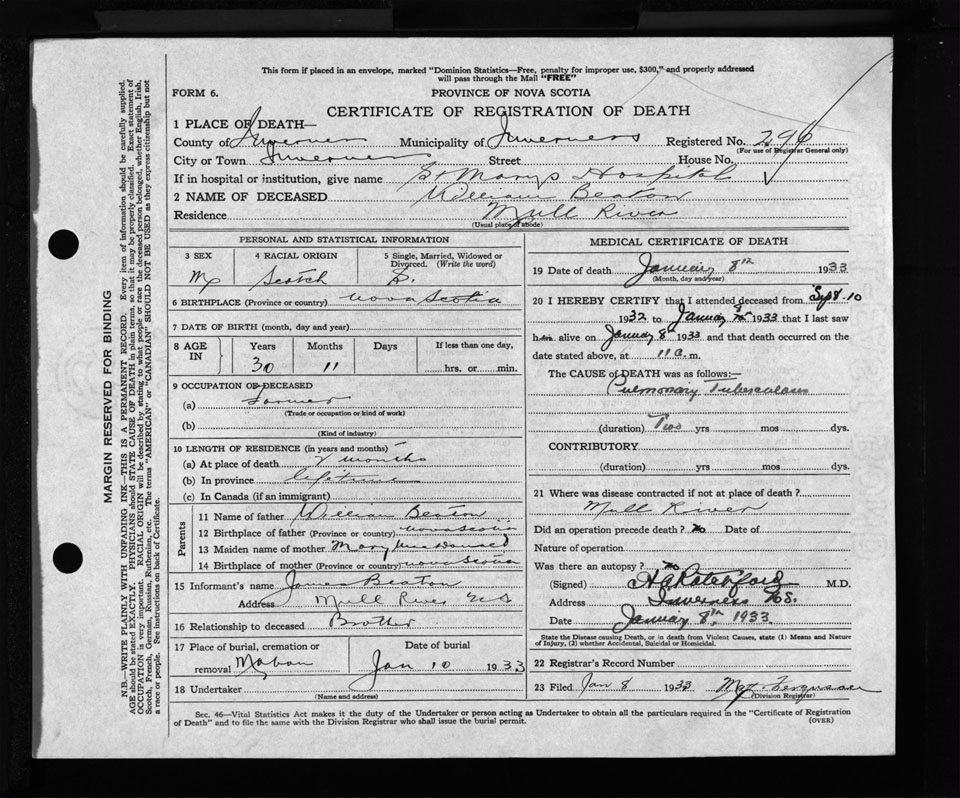 This form if placed in an envelope, marked "Dominion Statistics—Free, penalty for improper use, $300," and properly addressed
will pass through the Mail "FREE"
FORM 6. PROVINCE OF NOVA SCOTIA
CERTIFICATE OF REGISTRATION OF DEATH
1 PLACE OF DEATH—
County of Inverness Municipality of Inverness Registered No. 296
(For use of Registrar General only)
City or Town Inverness Street House No.
If in hospital or institution, give name St Marys Hospital
2 NAME OF DECEASED William Beaton
Residence Mull River
(Usual place of abode)
PERSONAL AND STATISTICAL INFORMATION
3 SEX 4 RACIAL ORIGIN 5 Single, Married, Widowed or
Divorced. (Write the word)
M Scotch S.
6 BIRTHPLACE (Province or country) Nova Scotia
7 DATE OF BIRTH (month, day and year)
8 AGE IN Years Months Days If less than one day,
30 11 hrs. or min.
9 OCCUPATION OF DECEASED
(a) Farmer
(Trade or occupation or kind of work)
(b)
(Kind of industry)
10 LENGTH OF RESIDENCE (in years and months)
(a) At place of death months
(b) In province lifetime
(c) In Canada (if an immigrant)
Parents
11 Name of father William Beaton
12 Birthplace of father (Province or country) Nova Scotia
13 Maiden name of mother Mary MacDonald
14 Birthplace of mother (Province or country) Nova Scotia
15 Informant's name James Beaton
Address Mull River N.S
16 Relationship to deceased Brother
17 Place of burial, cremation or Date of burial
removal Mabou Jan 10 1933
18 Undertaker
(Name and address)
MEDICAL CERTIFICATE OF DEATH
19 Date of death January 8th 1933
(Month, day and year)
20 I HEREBY CERTIFY that I attended deceased from Sept. 10
1932 to January 8th 1933 that I last saw
him alive on January 8th 1933 and that death occurred on the
date stated above, at 11 a. m.
The CAUSE of DEATH was as follows:—
Pulmonary Tuberculosis
(duration) Two yrs mos dys.
CONTRIBUTORY
(duration) yrs. mos. dys.
21 Where was disease contracted if not at place of death?
Mull River
Did an operation precede death? no Date of
Nature of operation
Was there an autopsy? no
(Signed) M.D.
Address Inverness N.S.
Date January 8th 1933.
State the Disease causing Death, or in death from Violent Causes, state (1) Means and Nature
of Injury, (2) whether Accidental, Suicidal or Homicidal.
22 Registrar's Record Number
23 Filed Jan 8 1933 Ferguson
(Division Registrar)
Sec. 46—Vital Statistics Act makes it the duty of the Undertaker or person acting as Undertaker to obtain all the particulars required in the "Certificate of Registration
of Death" and to file the same with the Division Registrar who shall issue the burial permit. (OVER)
MARGIN RESERVED FOR BINDING
N.B.—WRITE PLAINLY WITH UNFADING INK—THIS IS A PERMANENT RECORD. Every item of information should be carefully supplied.
AGE should be stated EXACTLY. PHYSICIANS should STATE CAUSE OF DEATH in plain terms, so that it may be properly classified. Exact statement of
OCCUPATION is very important. RACIAL ORIGIN will be described by stating to what people or race the deceased person belonged, whether English, Irish,
Scotch, French, German, Russian, Ruthenian, etc. The terms "AMERICAN" or "CANADIAN" SHOULD NOT BE USED as they express citizenship but not
a race or people. See instructions on back of Certificate.